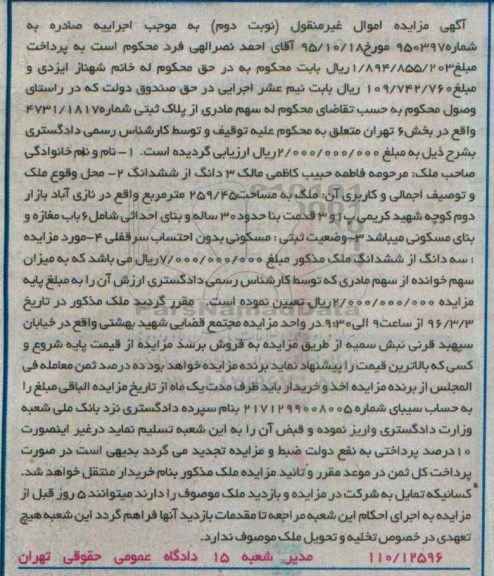 آگهی مزایده اموال غیرمنقول (نوبت دوم) به موجب اجراییه صادره به
شماره۹۵۰۳۹۷ مورخ۹۵/۱۰/۱۸ آقای احمد نصرالهی فرد محکوم است به پرداخت
مبلغ۱/۸۹۴/۸۵۵/۲۰۳ریال بابت محکوم به در حق محکوم له خانم شهناز ایزدی و
مبلغ۱۰۹/۷۴۲/۷۶۰ ریال بابت نیم عشر اجرایی در حق صندوق دولت که در راستای
وصول محکوم به حسب تقاضای محکوم له سهم مادری از پلاک ثبتی شماره۴۷۳۱/۱۸۱۷
واقع در بخش۶ تهران متعلق به محکوم علیه توقیف و توسط کارشناس رسمی دادگستری
بشرح ذیل به مبلغ ۲/۰۰۰/۰۰۰/۰۰۰ریال ارزیابی گردیده است. ۱-نام و نام خانوادگی
صاحب ملک: مرحومه فاطمه حبیب کاظمی مالک ۳ دانگ از ششدانگ ۲- محل وقوع ملک
و توصیف اجمالی و کاربری آن: ملک به مساحت۲۵۹/۴۵ مترمربع واقع در نازی آباد بازار
دوم کوچه شهید کریمی پ۱و۳ قدمت بنا حدود۳۰ ساله و بنای احداثی شامل۶ باب مغازه و
بنای مسکونی میباشد ۳-وضعیت ثبتی : مسکونی بدون احتساب سرقفلی ۴-مورد مزایده
: سه دانگ از ششدانگ ملک مذکور مبلغ ۷/۰۰۰/۰۰۰/۰۰۰ریال می باشد که به میزان
سهم خوانده از سهم مادری که توسط کارشناس رسمی دادگستری ارزش آن را به مبلغ پایه
مزایده ۲/۰۰۰/۰۰۰/۰۰۰ریال تعیین نموده است. مقرر گردید ملک مذکور در تاریخ
۹۶/۳/۳ از ساعت۹ الی۹:۳۰ در واحد مزایده مجتمع قضایی شهید بهشتی واقع در خیابان
سپهبد قرنی نبش سمیه از طریق مزایده به فروش برسد مزایده از قیمت پایه شروع و
کسی که بالاترین قیمت را پیشنهاد نماید برنده مزایده خواهد بود ده درصد ثمن معامله فی
المجلس از برنده مزایده اخذ و خریدار باید ظرف مدت یک ماه از تاریخ مزایده الباقی مبلغ را
به حساب سیبای شماره ۲۱۷۱۲۹۹۰۰۸۰۰۵ بنام سپرده دادگستری نزد بانک ملی شعبه
وزارت دادگستری واریز نموده و قبض آن را به این شعبه تسلیم نماید درغیر اینصورت
۱۰درصد پرداختی به نفع دولت ضبط و مزایده تجدید می گردد بدیهی است در صورت
پرداخت کل ثمن در موعد مقرر و تائید مزایده ملک مذکور بنام خریدار منتقل خواهد شد.
کسانیکه تمایل به شرکت در مزایده و بازدید ملک موصوف را دارند میتوانند ۵ روز قبل از
مزایده به اجرای احکام این شعبه مراجعه تا مقدمات بازدید آنها فراهم گردد این شعبه هیچ
تعهدی در خصوص تخلیه و تحویل ملک موصوف ندارد.
۱۱۰/۱۲۵۹۶ مدیر شعبه ۱۵ دادگاه عمومی حقوقی تهران